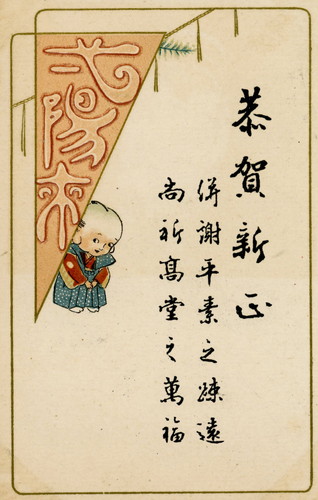 恭賀新正
併謝平素之疎遠
尚祈髙堂之萬福
弌陽来